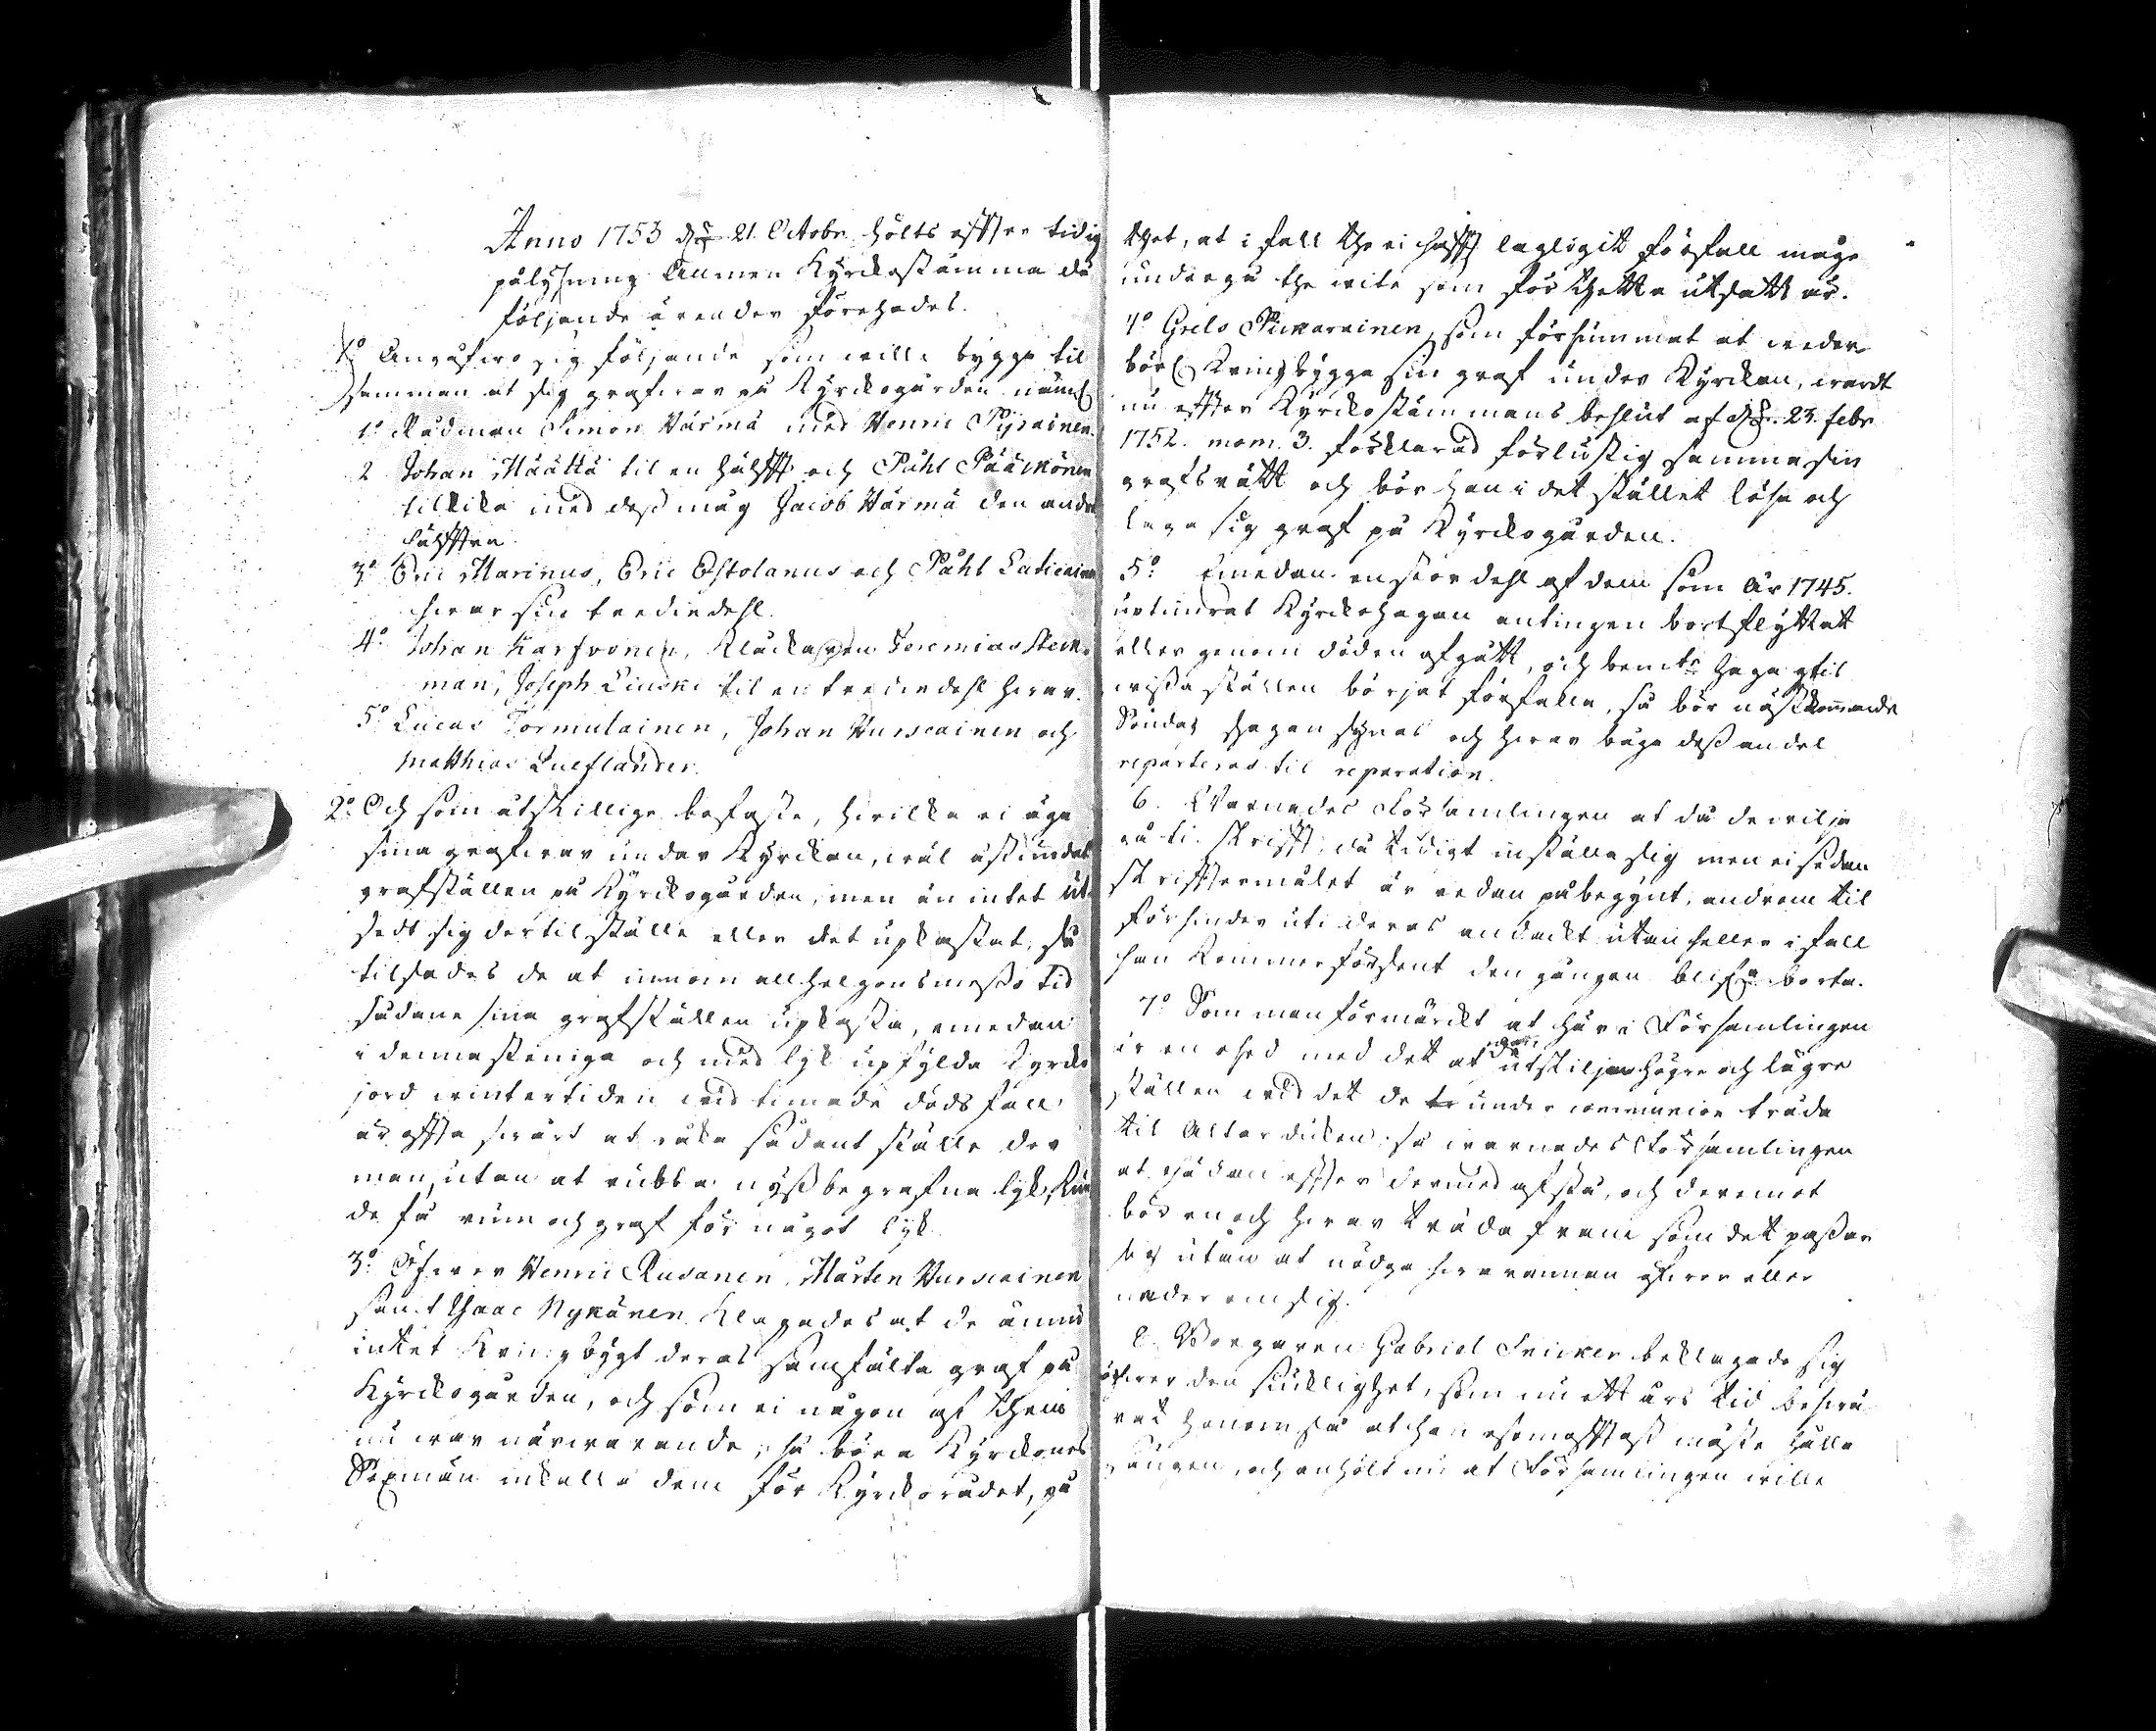 Anno 1753 d. 21. Octobr hölts efter tidig
pålysning Almen Kyrckostämma då
följande ärender förehades.
1o Angåfwo sig följande som wille bygga til
samman åt sig grafwar på Kyrckogården näml
1o Rådman Simon Wärmä med Henric Pyrainen.
2 Johan Määttä til en hälfft och Påhl Pääkönen
tillika med dess måg Jacob Wärmä den andra
hälfften.
3o Eric Marinus, Eric Estolanus och Påhl
hwar sin trediedehl.
4o Johan Karfvonen, Klockaren Jeremias
man, Joseph til en trediedehl hwar.
5o Lucas Tormulainen, Johan Hurscainen och
Matthias Lueflander.
2o Och som åtskillige besatte, hwilka ei äga
sina grafwar under Kyrckan, wäl åstundat
grafställen på Kyrckogården, men än intet ut-
sedt sig dertil ställe eller det upkastat, så
tilsades de at innom allhelgonsmesso tid
sådane sina grafställen upkasta, emedan
i denna steniga och med lyk upfylda Kyrko
jord wintertiden wid timade dödsfall
är offta swårt at råka sådant ställe der
man, utan at rubba nyss begrafna lyk, kun
de få rum och graf för något lyk.
3o Öfwer Henric Rusanen, Mårten Hurscainen
samt Isaac Nykänen klagades at de ännu
intet kringbygt deras samfälta graf på
Kyrckogården, och som ei någon af them
nu war närwarande, så böra Kyrckones
Sexmän inkalla dem för Kyrckorådet, på
thet, at i fall the ei hafft lagligit förfall måge
undergå the wite som för thetta utsatt är.
4o Grels Pitkarainen, som försummat at weder
börl kringbygga sin graf under Kyrckan, wardt
nu efter Kyrckostämmans beslut af d. 23. febr
1752. mom. 3. förklarad förlustig samma sin
grafsrätt och bör han i det stället lösa och
laga sig graf på Kyrckogården.
5o Emedan en stor dehl af dem som År 1745.
uptimrat Kyrckohagan antingen bortflyttat
eller genom döden afgått, och bemte haga til
wissa ställen börjat förfalla, så bör nästkommande
Söndag hagan synas och hwar dess andel
reparteras til reparation.
6. Warnades Församlingen at då de wilja
gå til skrifft, då tidigt inställa sig men ei sedan
skrifftermålet är redan påbegynt, androm til
förhinder uti deras andackt utan heller i fall
han kommer försent den gången blifwa borta.
7o Som man förmärckt at här i Församlingen
är en ohsed med det at de utskiljer högre och lägre
ställen wid det de under communion träda
til Altar disken: så warnades Församlingen
at hädan effter dermed afstå, och deremot
bör en och hwar träda fram som det passar
sig utan at nödga hwarannan öfwer eller
neder om sig.
8. Borgaren Gabriel Snicker beklagade sig
öfwer den siuklighet, som nu ett års tid beswä
rat honom så at han esomofftast måste hålla
Sängen, och anhölt nu at Församlingen wille